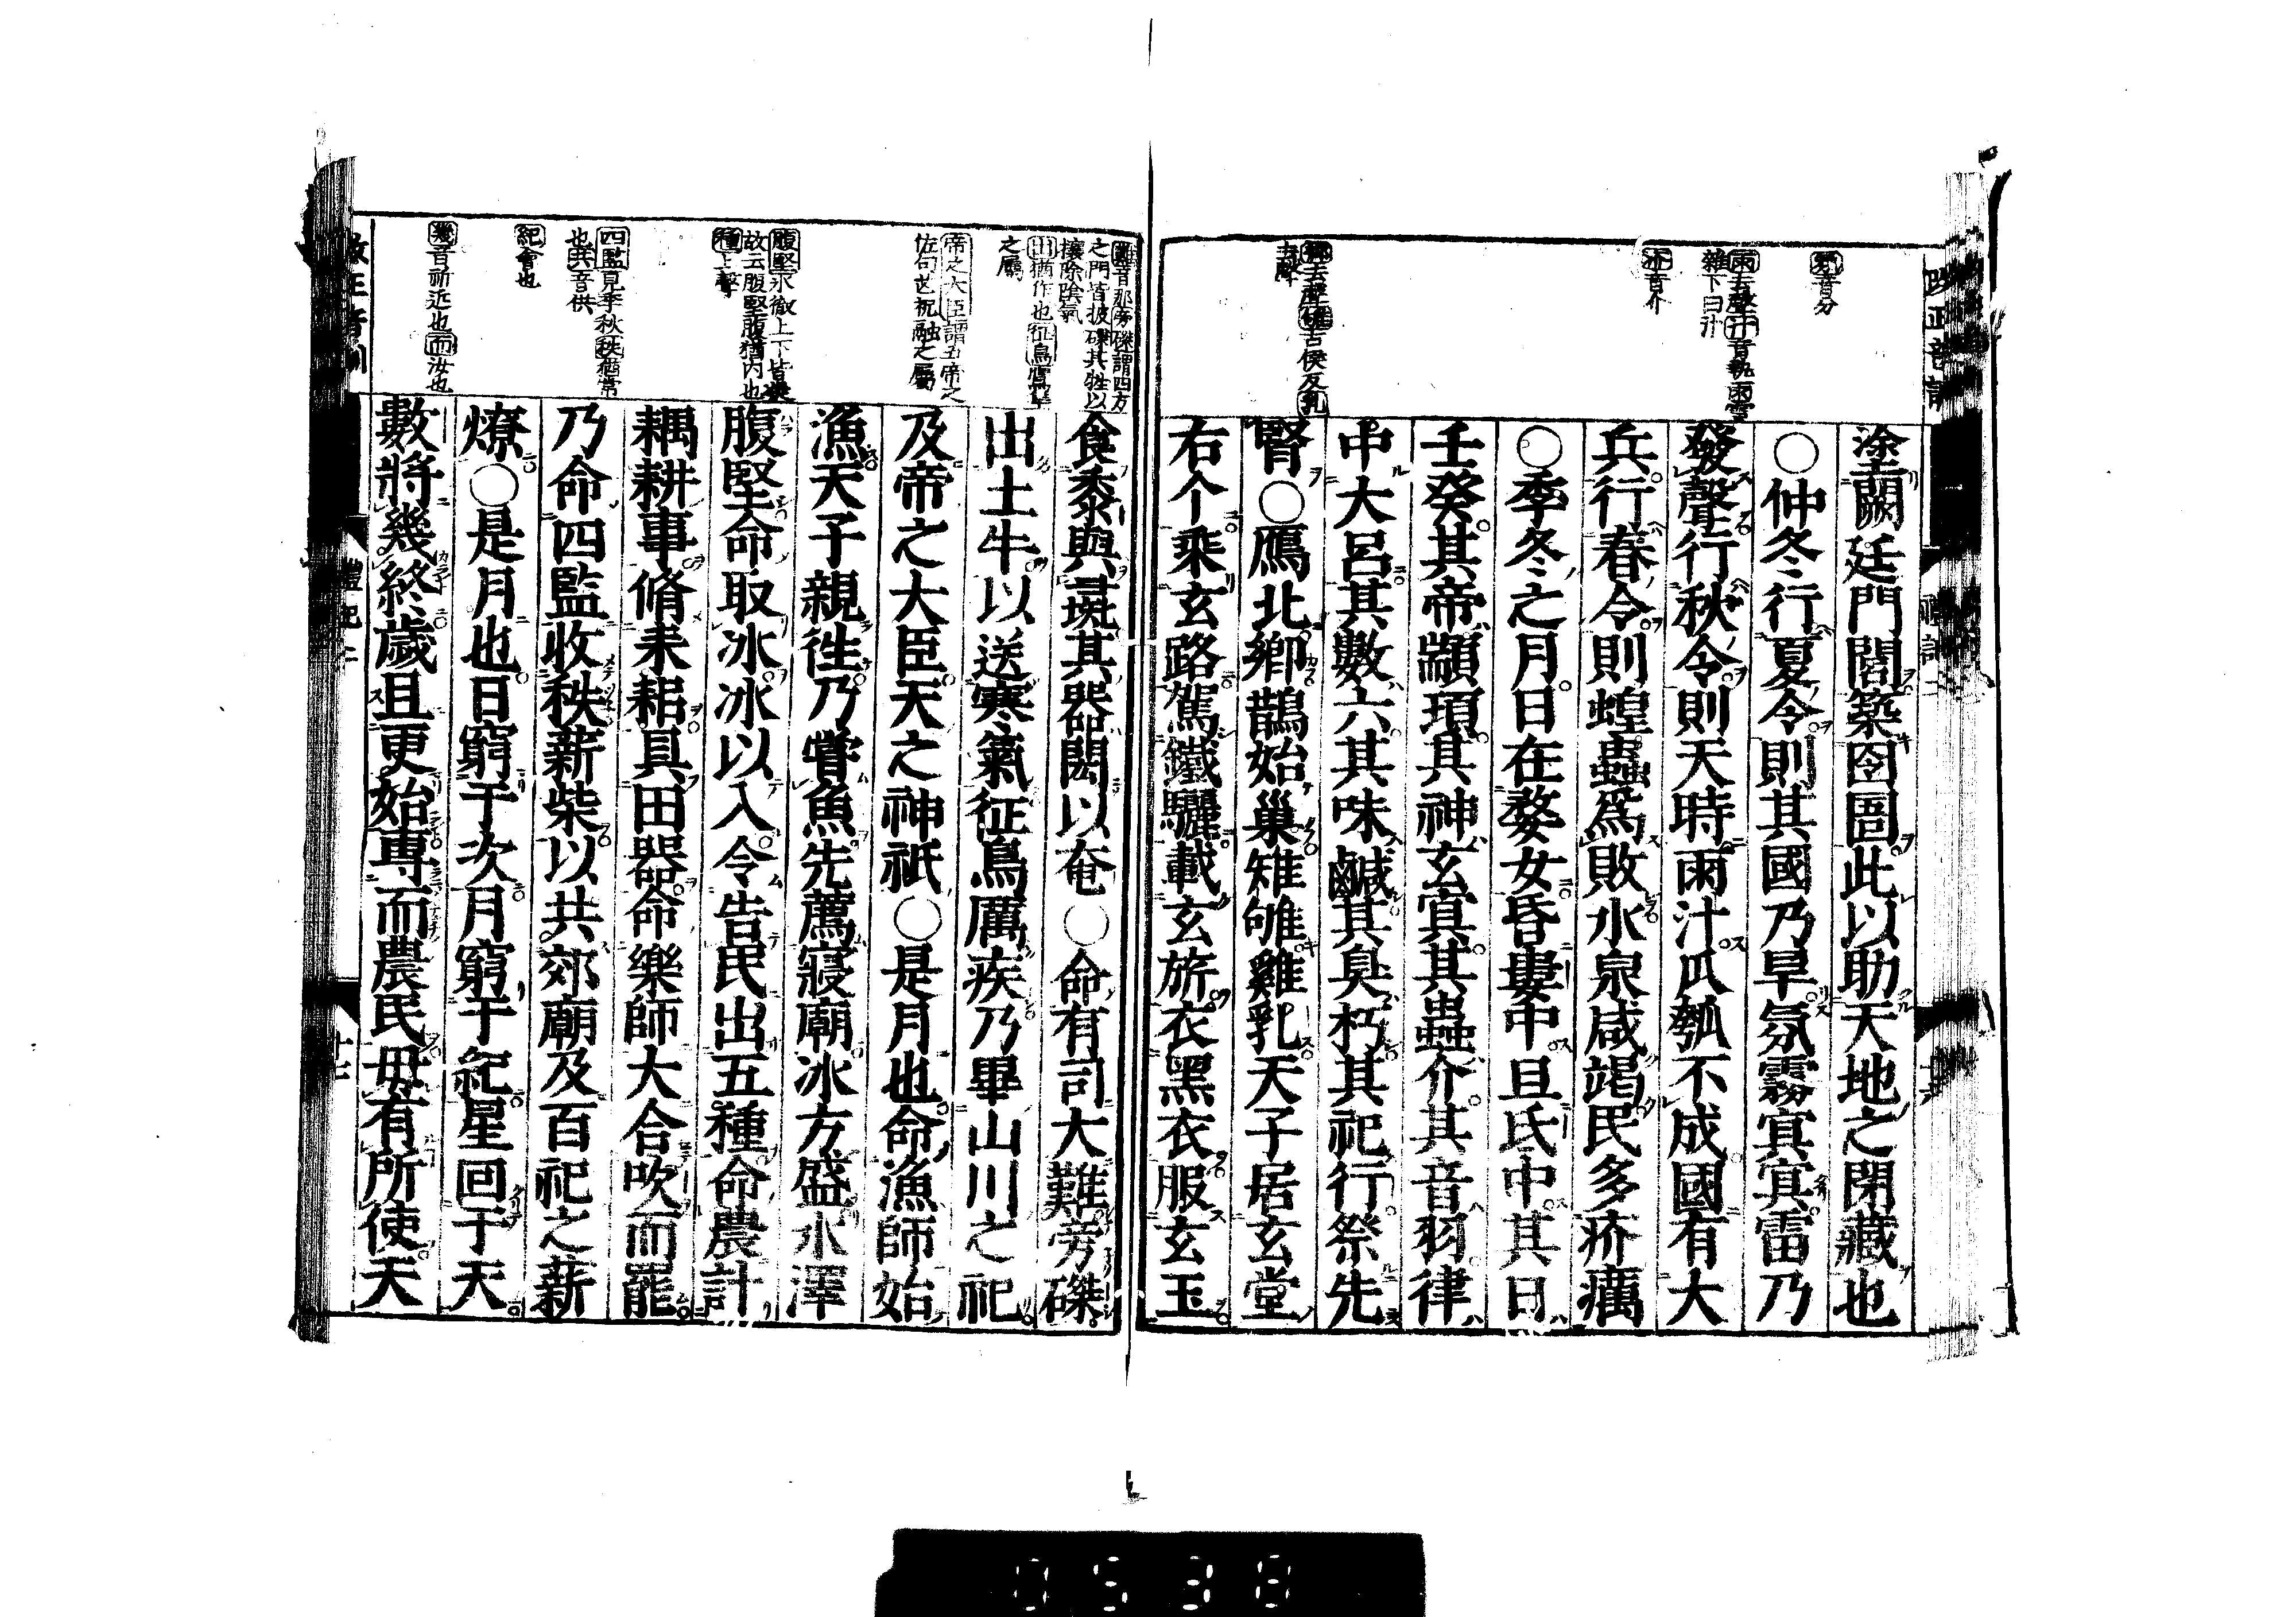 氛音分
雨去聲汁音執雨雪
雜下曰汁
疥音介
鄉去聲雊古侯反乳
去聲
塗闕廷門閭築囹圄此以助天地之閉藏也
○仲冬行夏令則其國乃旱氛霧冥冥雷乃
發聲行秋令則天時雨汁瓜瓠不成國有大
兵行春令則蝗蟲爲敗水泉咸竭民多疥癘
○季冬之月日在婺女昏婁中旦氐中其日
壬癸其帝顓頊其神玄冥其蟲介其音羽律
中大呂其數六其味鹹其臭朽其祀行祭先
腎○鴈北鄉鵲始巢雉雊雞乳天子居玄堂
右个乘玄路駕鐵驪載玄旂衣黑衣服玄玉
難音那旁磔謂四方
之門皆披磔其牲以
攘除陰氣
出猶作也征鳥鷹隼
之屬
帝之大臣謂五帝之
佐句芒祝融之屬
腹堅氷徹上下皆堅
故云腹堅腹猶内也
種上聲
四監見季秋秩猶常
也共音供
紀會也
幾音祈近也而汝也
食黍與彘其器閎以奄○命有司大難旁磔
出土牛以送寒氣征鳥厲疾乃畢山川之祀
及帝之大臣天之神祇○是月也命漁師始
漁天子親往乃嘗魚先薦寢廟冰方盛水澤
腹堅命取冰冰以入令告民出五種命農計
耦耕事脩耒耜具田器命樂師大合吹而罷
乃命四監收秩薪柴以共郊廟及百祀之薪
燎○是月也日窮于次月窮于紀星回于天
數將幾終歲且更始專而農民毋有所使天
禮記二
0538